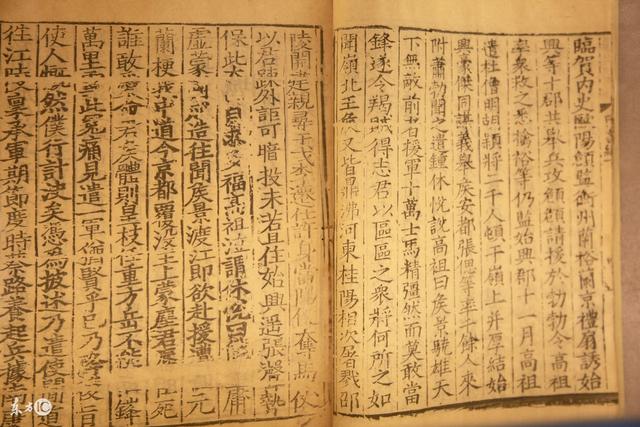 臨賀内史歐陽頠監衡州蘭裕蘭京禮扇誘始
興等十郡共舉兵攻頠頠請援於勃勃令高祖
率衆救之悉擒裕等仍監始興郡十一月高祖
遣杜僧明胡穎將二千人頓于嶺上并厚結始
興豪傑同謀義舉侯安都張偲等率千餘人來
附蕭勃聞之遣鍾休悅說高祖曰侯景驍雄天
下無敵前者援軍十萬士馬精彊然而莫敢當
鋒遂令羯賊得志君以區區之衆將何所之如
聞嶺北王侯又皆鼎沸河東桂陽相次屠戮邵
陵開建親尋干戈李遷仕許身當陽便奪馬仗
以君疎外詎可暗投未若且住始興遙張聲勢
保此太山自求多福高祖泣謂休悅曰僕本庸
虛蒙國成造往聞侯景渡江即欲赴援遭值元
蘭梗我中道今京都覆沒主上蒙塵君辱臣死
誰敢愛命君侯體則皇枝任重方岳不能摧鋒
萬里雪此冤痛見遣一軍猶賢乎已乃降後旨
使人慨然僕行計決矣憑為披述乃遣使間道
往江陵稟承軍期節度時蔡路養起兵據南
东方IC